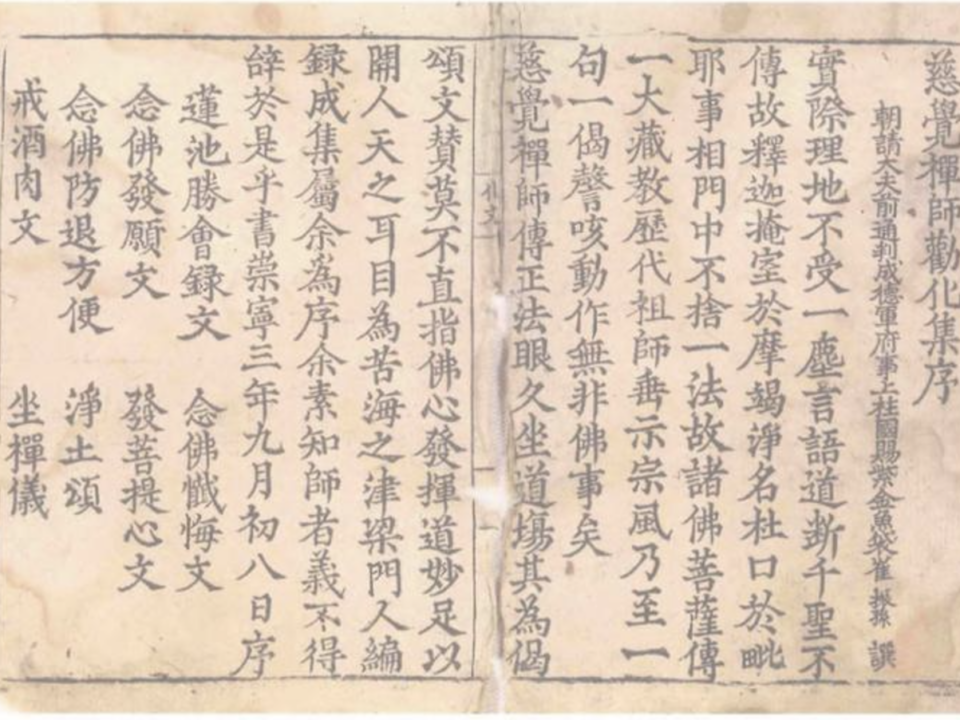 慈覺禪師勸化集序
朝請大夫前通判成德軍府事上柱國賜紫金魚袋崔振孫 譔
實際理地不受一塵言語道断千聖不
傳故釋迦掩室於摩竭淨名杜口於毗
耶事相門中不捨一法故諸佛菩薩傳
一大藏教歷代祖師垂示宗風乃至一
句一偈謦咳動作無非佛事矣
慈覺禪師傳正法眼久坐道場其為偈
頌文賛莫不直指佛心發揮道妙足以
開人天之耳目為苦海之津梁門人編
録成集屬余為序余素知師者義不得
辝於是乎書崇寧三年九月初八日序
蓮池勝會録文 念佛懺悔文
念佛發願文 發菩提心文
念佛防退方便 淨土頌
戒酒肉文 坐禪儀